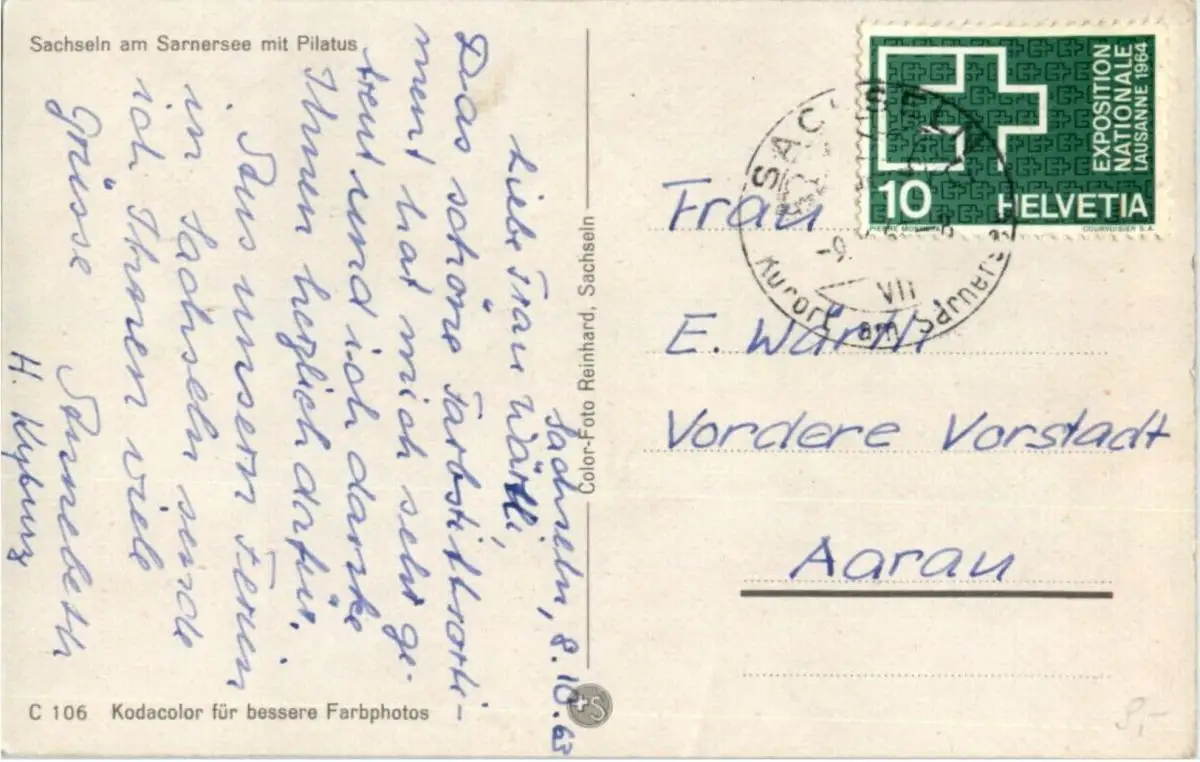 Sachseln am Sarnersee mit Pilatus
Sachseln, 8.10.63
Liebe Frau Wärtli,
Das schöne Farbstiftborti-
ment hat mich sehr ge-
freut und ich danke
Ihnen herzlich dafür.
Aus unsern Ferien
in Sachseln sende
ich Ihnen viele
Grüsse
Annebeth
H. Kyburz
C 106 Kodacolor für bessere Farbphotos
Color-Foto Reinhard, Sachseln
+S
EXPOSITION
NATIONALE
LAUSANNE 1964
10 HELVETIA
COURVOISIER S.A.
SACHSELN
-9.
VII
Kurort am Sarnersee
Frau
E. Wärtli
Vordere Vorstadt
Aarau
9,-